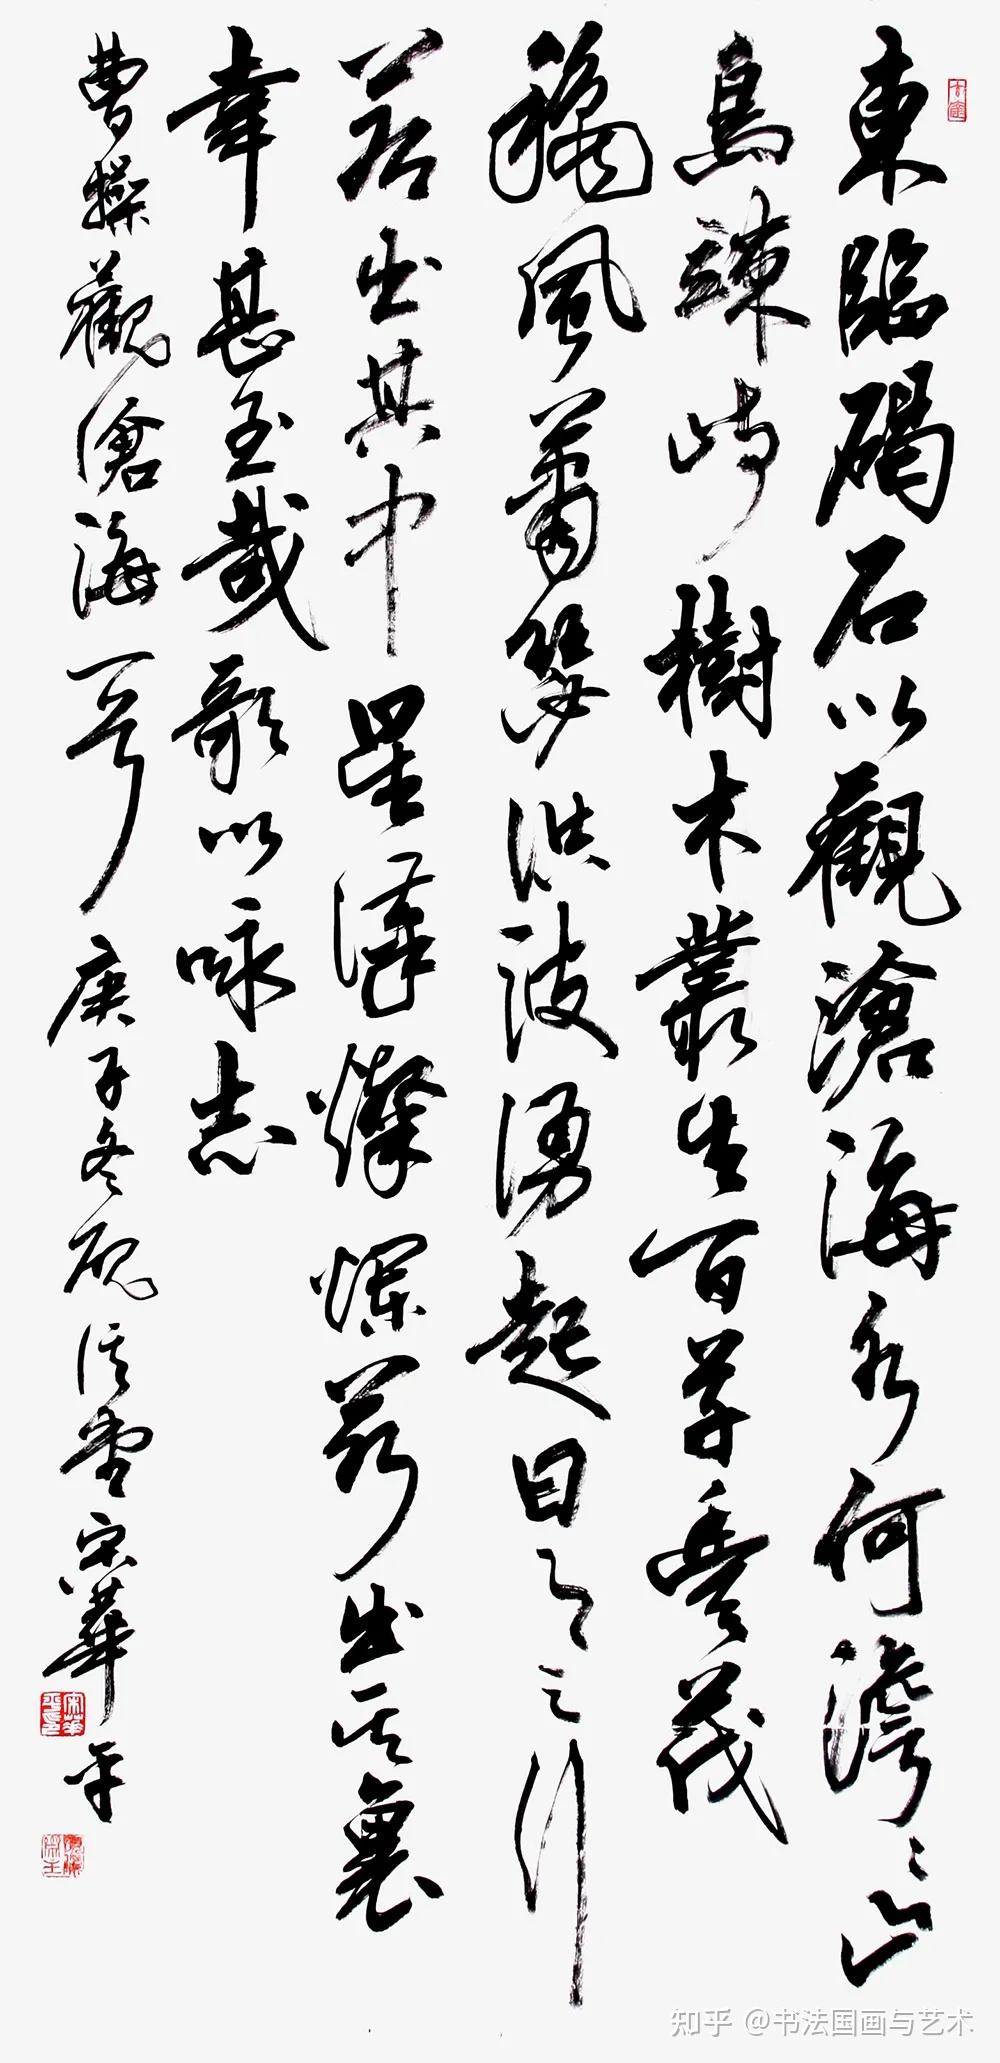 東臨碣石以觀滄海水何澹〻山
島竦峙樹木叢生百草豐茂
龝風蕭瑟洪波湧起日月之行
若出其中星漢燦爛若出其裏
幸甚至哉歌以咏志
曹操觀滄海一首 庚子冬 堂宋華平
知乎 @书法国画与艺术